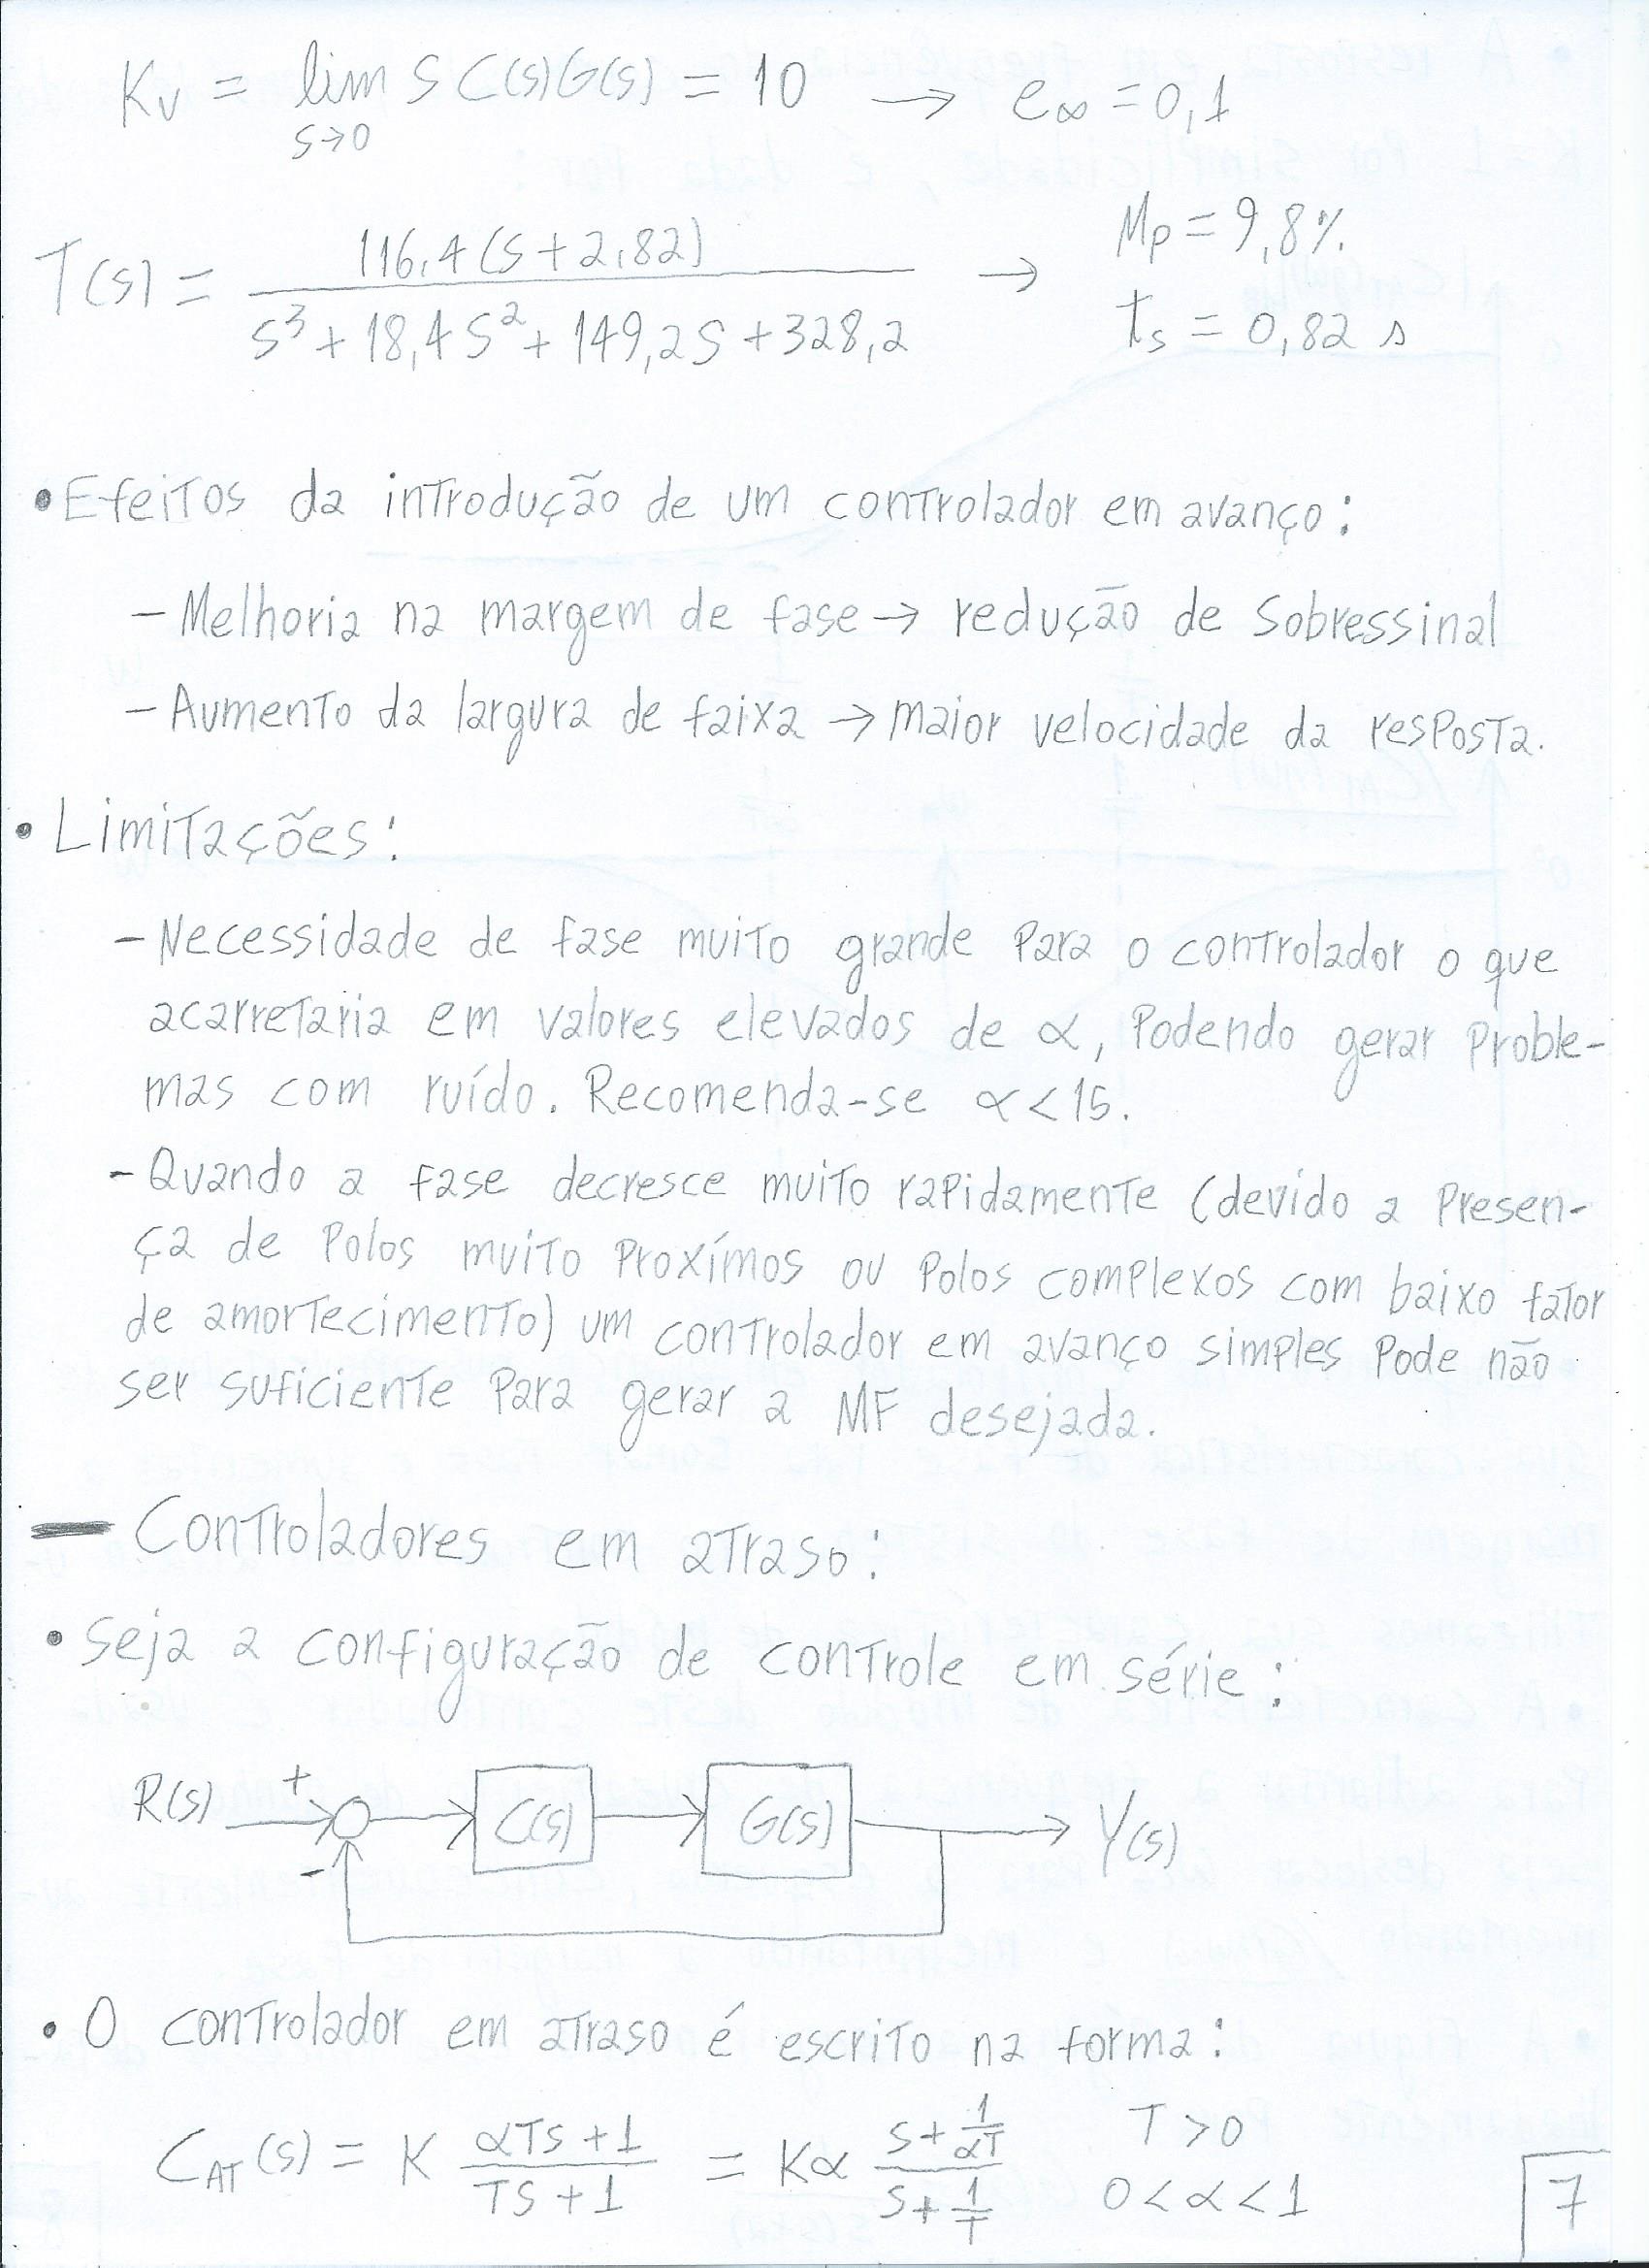 Kv = lim S C(s)G(s) = 10 → e∞ = 0,1
s→0
T(s) = 116,4(s+2,82) / s³ + 18,4s² + 149,2s + 328,2 → Mp = 9,8%
ts = 0,82 s
• Efeitos da introdução de um controlador em avanço:
– Melhoria na margem de fase → redução de sobressinal
– Aumento da largura de faixa → maior velocidade da resposta.
• Limitações:
– Necessidade de fase muito grande para o controlador o que
acarretaria em valores elevados de α, podendo gerar proble-
mas com ruído. Recomenda-se α < 15.
- Quando a fase decresce muito rapidamente (devido a presen-
ça de polos muito proxímos ou polos complexos com baixo fator
de amortecimento) um controlador em avanço simples pode não
ser suficiente para gerar a MF desejada.
– Controladores em atraso:
• Seja a configuração de controle em série:
R(s) + - C(s) G(s) Y(s)
• O controlador em atraso é escrito na forma:
C_AT(s) = K (αTs + 1)/(Ts + 1) = Kα (s + 1/αT)/(s + 1/T) T > 0
0 < α < 1
7